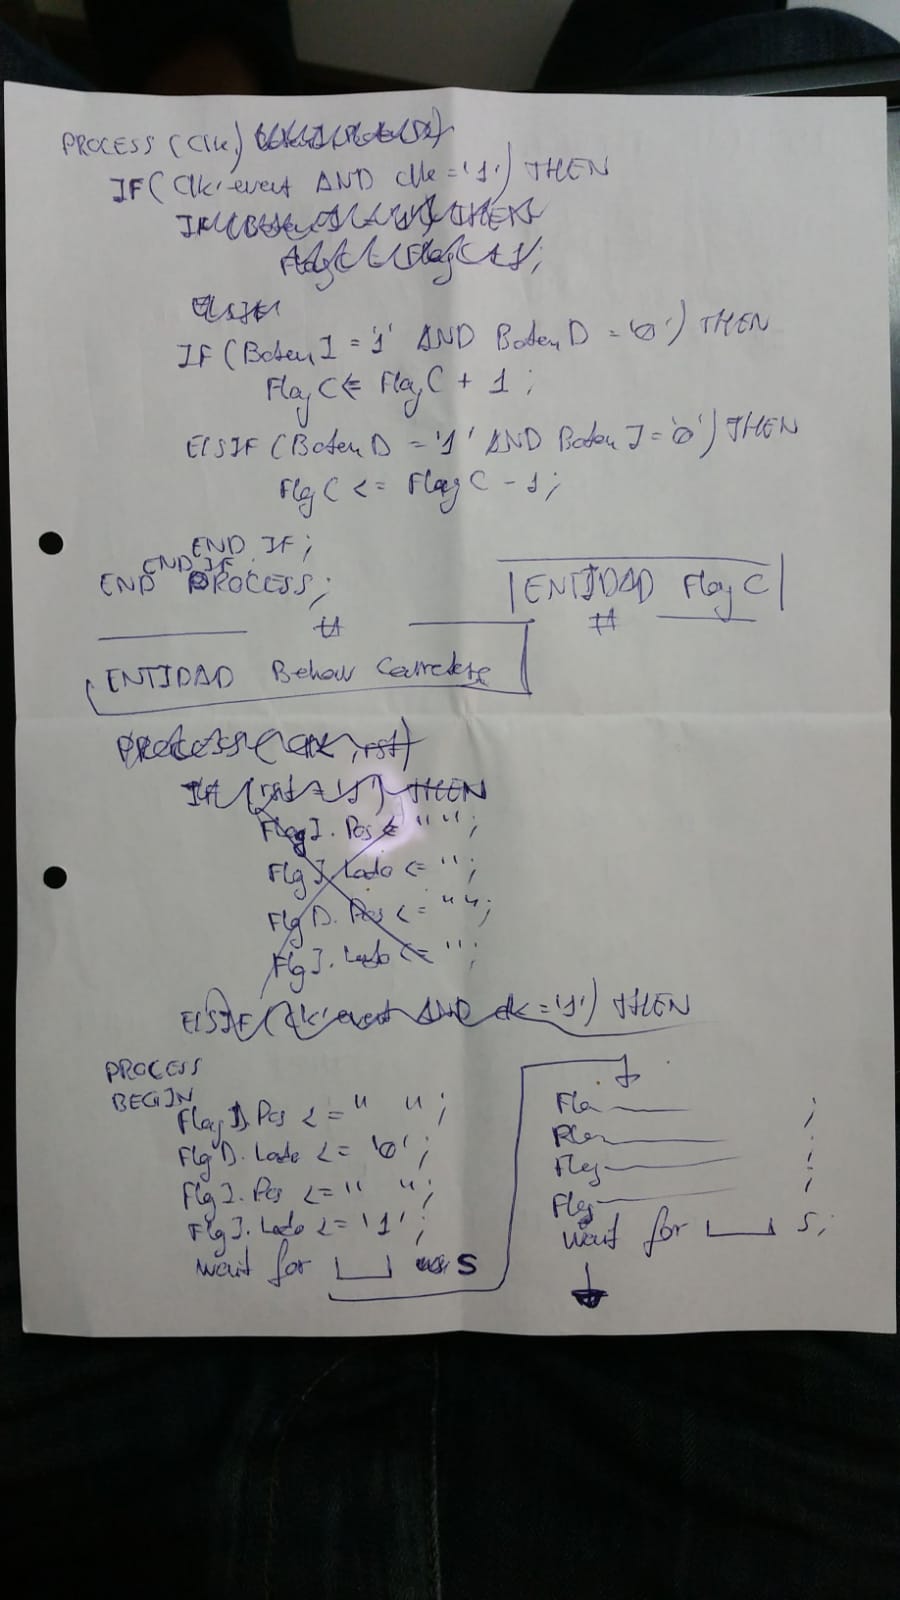 PROCESS (Clk)
IF (Clk'event AND clk = '1') THEN
IF (Boton I = '1' AND Boton D = '0') THEN
Flag C <= Flag C + 1 ;
ELSIF (Boton D = '1' AND Boton I = '0') THEN
Flg C <= Flag C - 1 ;
END IF ;
END IF ;
END PROCESS ;
ENTIDAD Flag C
ENTIDAD Behav Carretera
PROCESS (clk, rst)
IF (rst = '1') THEN
Flag I. Pos <= " " ;
Flg I. Lado <= '' ;
Flg D. Pos <= " " ;
Flg I. Lado <= '' ;
ELSIF (Clk'event AND clk = '1') THEN
PROCESS
BEGIN
Flag D. Pos <= " " ;
Flg D. Lado <= '0' ;
Flg I. Pos <= " " ;
Flg I. Lado <= '1' ;
wait for s
Fla ;
Fla ;
Fleg ;
Fleg ;
wait for s;